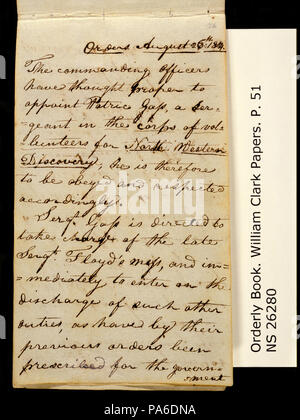 Orders August 26th 1804.
The commanding officers
have thought proper to
appoint Patric Gass, a ser-
=geant in the corps of vol-
=lunteers for North Western
Discovery, he is therefore
to be obeyed and respected
accordingly.
Sergt. Gass is directed to
take charge of the late
Sergt. Floyd's mess, and im-
=mediately to enter on the
discharge of such other
duties, as have by their
previous orders been
prescribed for the govern-
=ment
Orderly Book. William Clark Papers. P. 51
NS 26280
alamy
Image ID: PA6DNA
www.alamy.com